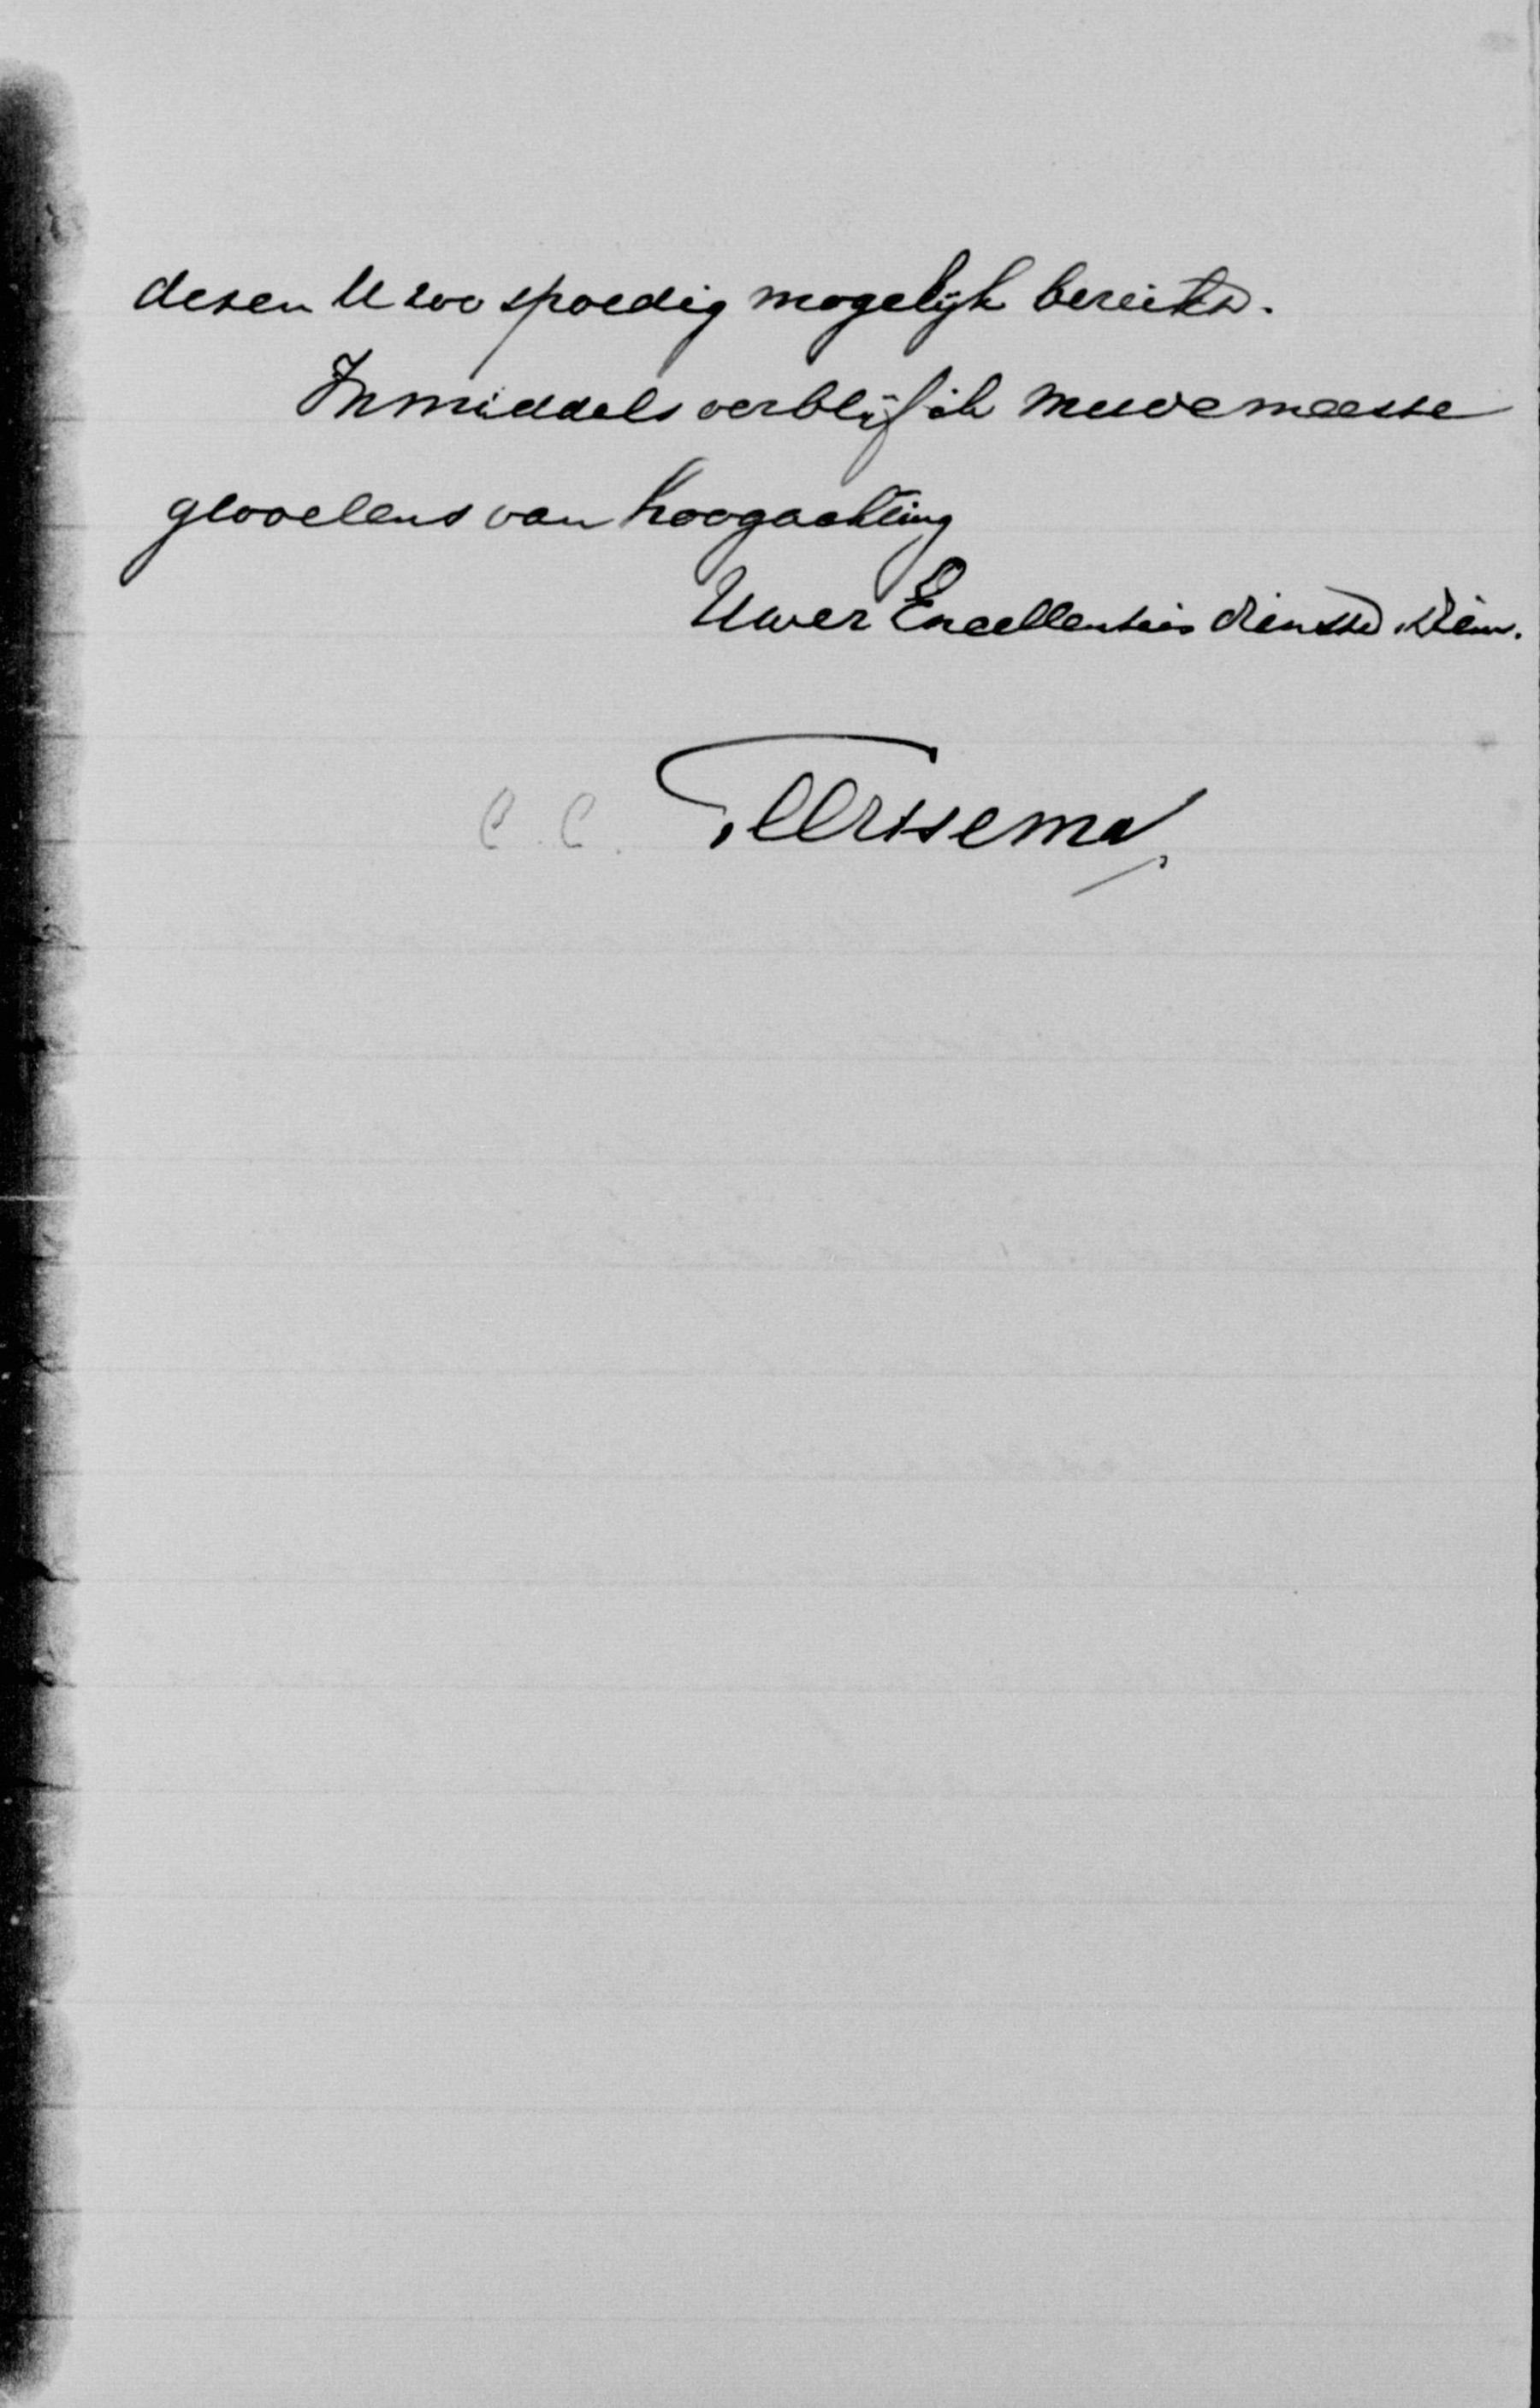 dezen U zoo spoedig mogelijk bereikt.
Inmiddels verblijf ik met de meeste
gevoelens van hoogachting
Uwer Excellenties dienstw. dien.
C. C.